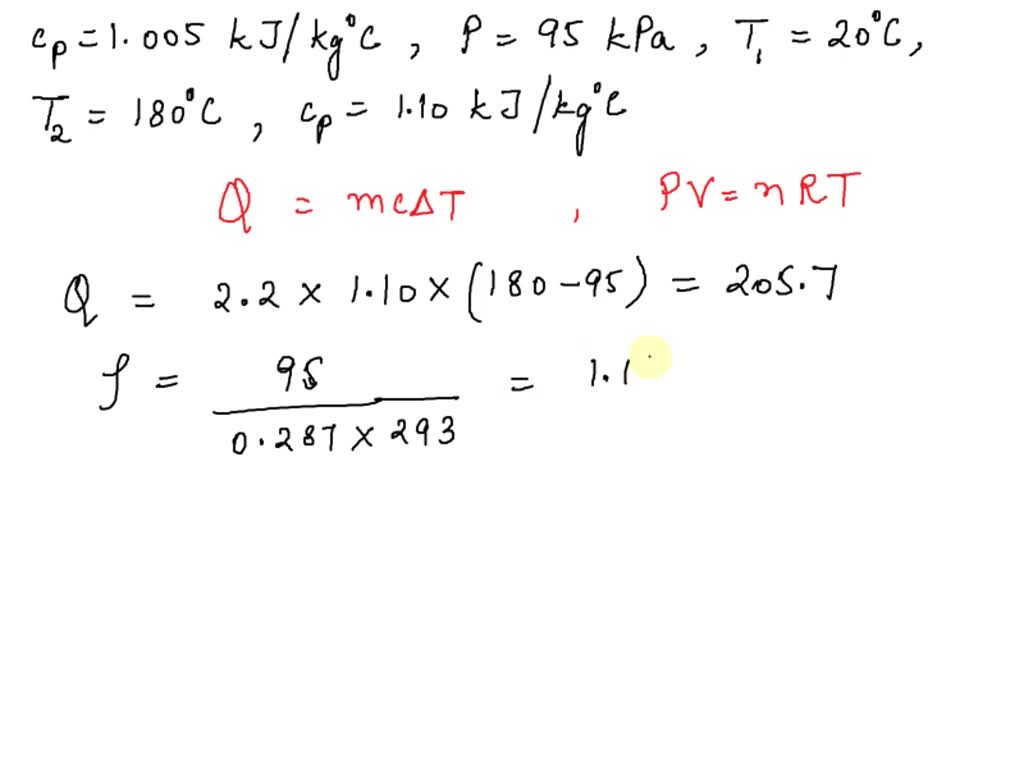 cp = 1.005 kJ/kg°C , P = 95 kPa , T1 = 20°C ,
T2 = 180°C , cp = 1.10 kJ/kg°C
Q = mcΔT , PV = nRT
Q = 2.2 × 1.10 × (180 - 95) = 205.7
ρ = 95 / 0.287 × 293 = 1.1